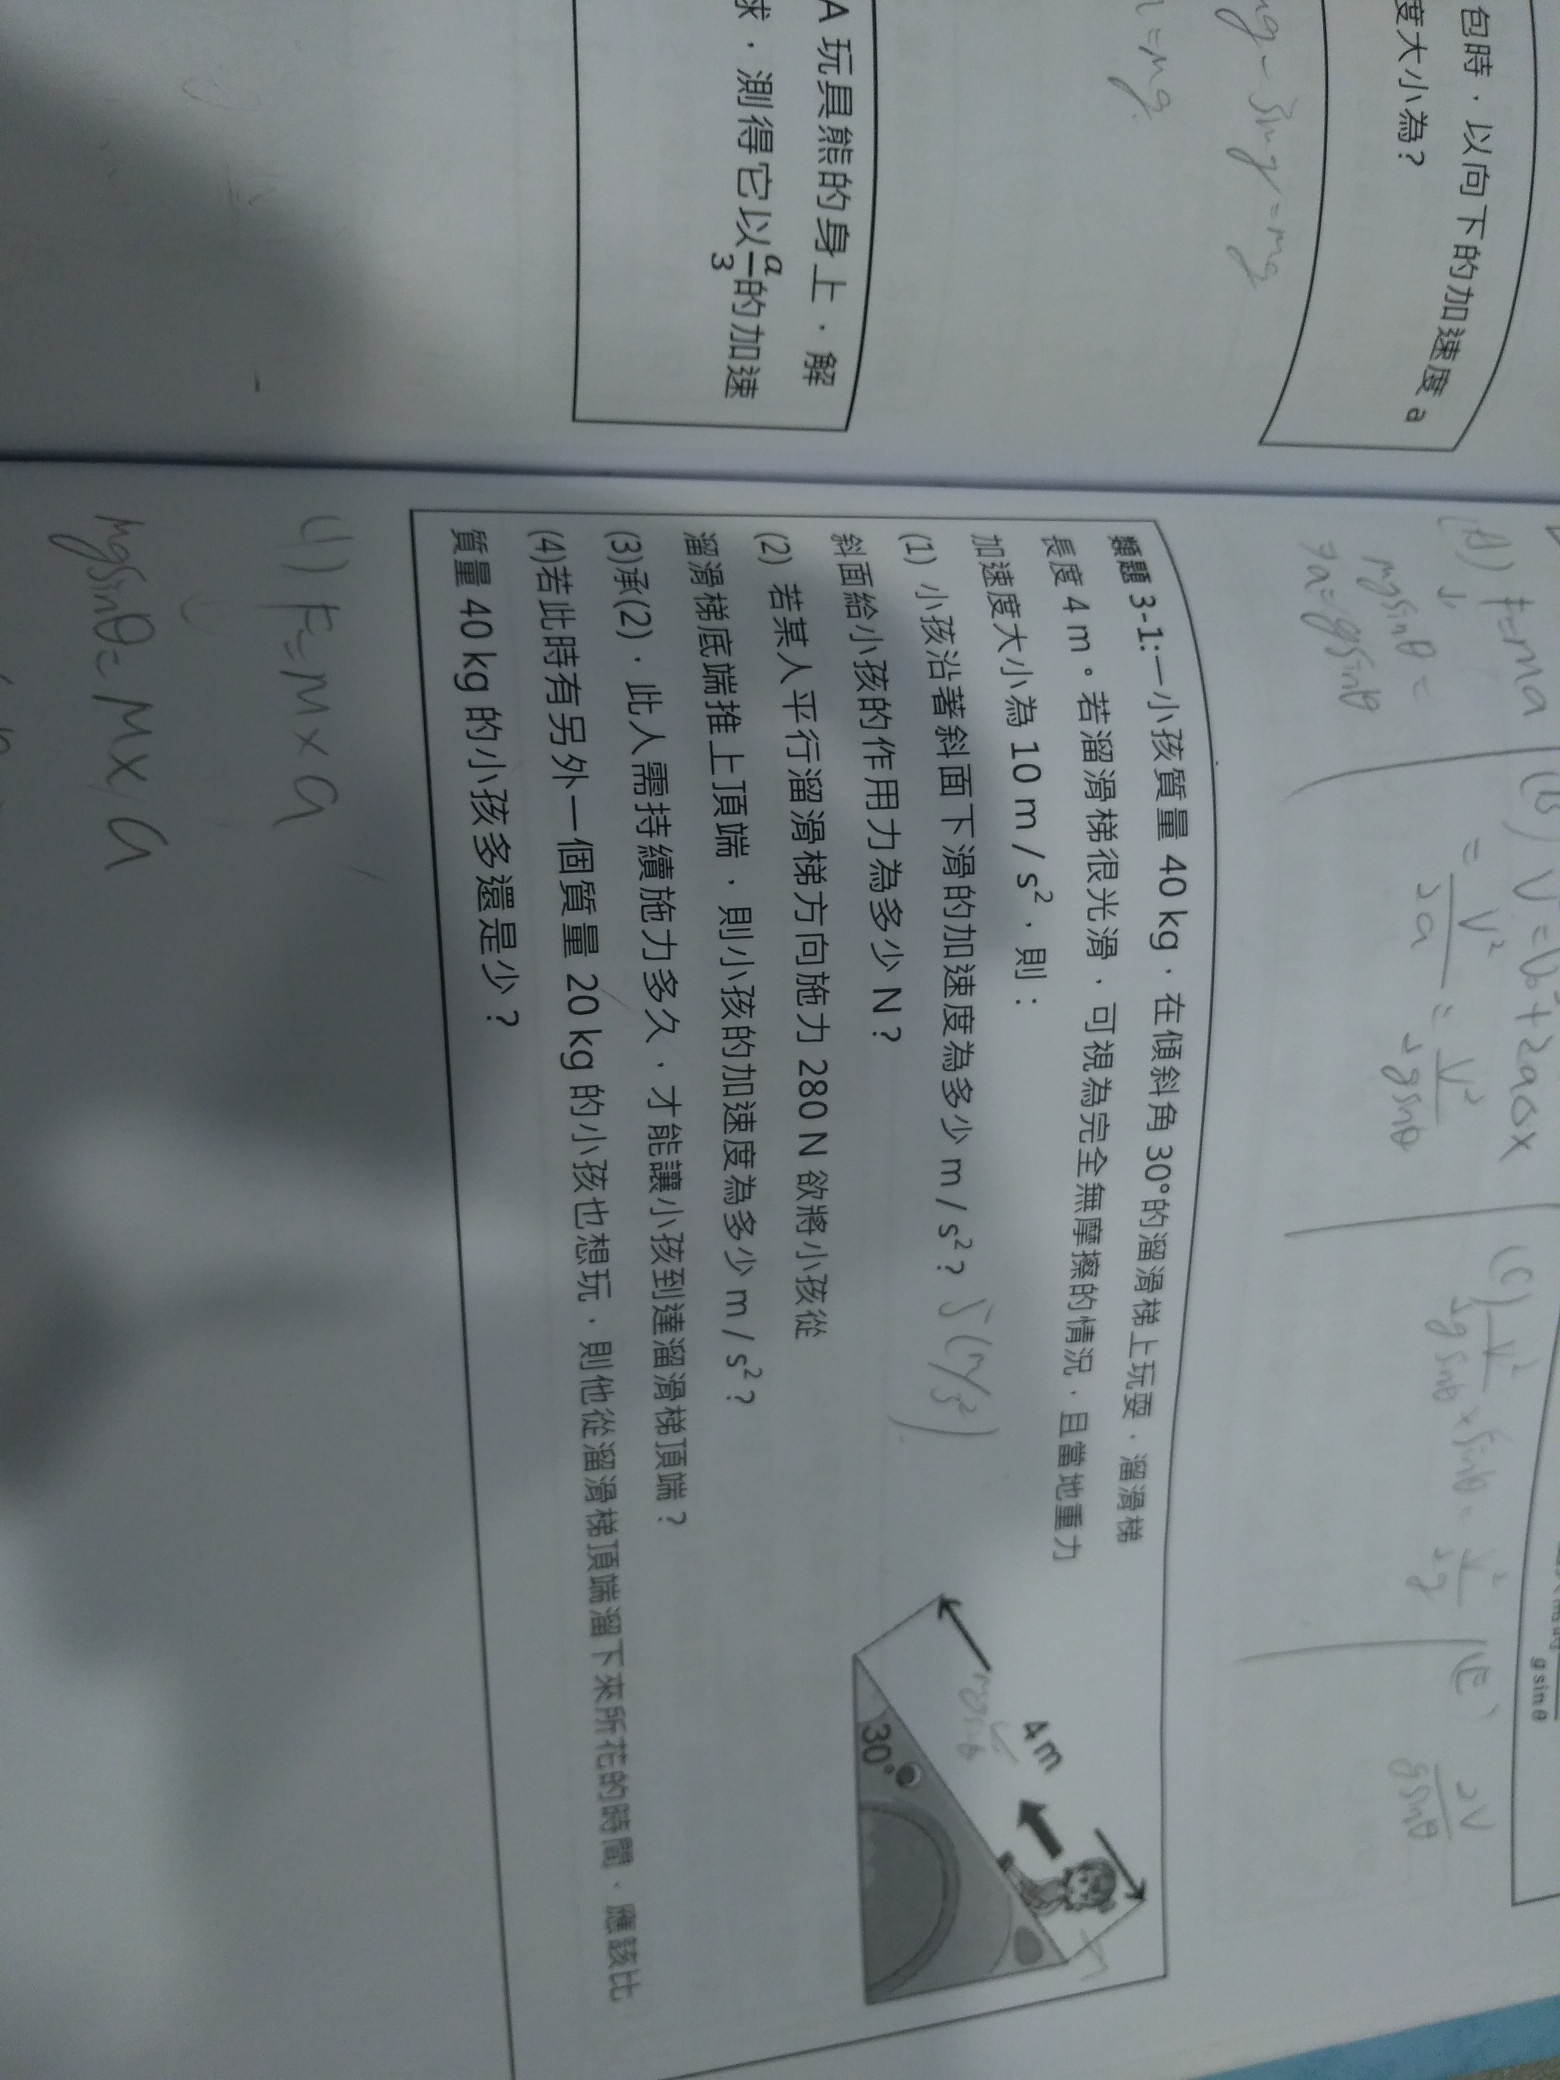 包時，以向下的加速度 a
度大小為？
A 玩具熊的身上，解
求，測得它以 a/3 的加速
(A) F=ma
mgsinθ =
a=gsinθ
= V²/2a = V²/2gsinθ
(C) V²/2gsinθ × sinθ = V²/2g
(E)
2V/gsinθ
gsinθ
類題 3-1:一小孩質量 40 kg，在傾斜角 30°的溜滑梯上玩耍，溜滑梯
長度 4 m。若溜滑梯很光滑，可視為完全無摩擦的情況，且當地重力
加速度大小為 10 m / s²，則：
(1) 小孩沿著斜面下滑的加速度為多少 m / s²？ 5 (m/s²)
斜面給小孩的作用力為多少 N？
(2) 若某人平行溜滑梯方向施力 280 N 欲將小孩從
溜滑梯底端推上頂端，則小孩的加速度為多少 m / s²？
(3)承(2)，此人需持續施力多久，才能讓小孩到達溜滑梯頂端？
(4)若此時有另外一個質量 20 kg 的小孩也想玩，則他從溜滑梯頂端溜下來所花的時間，應該比
質量 40 kg 的小孩多還是少？
4 m
30°
mgsinθ
F=M×a
mgsinθ=M×a